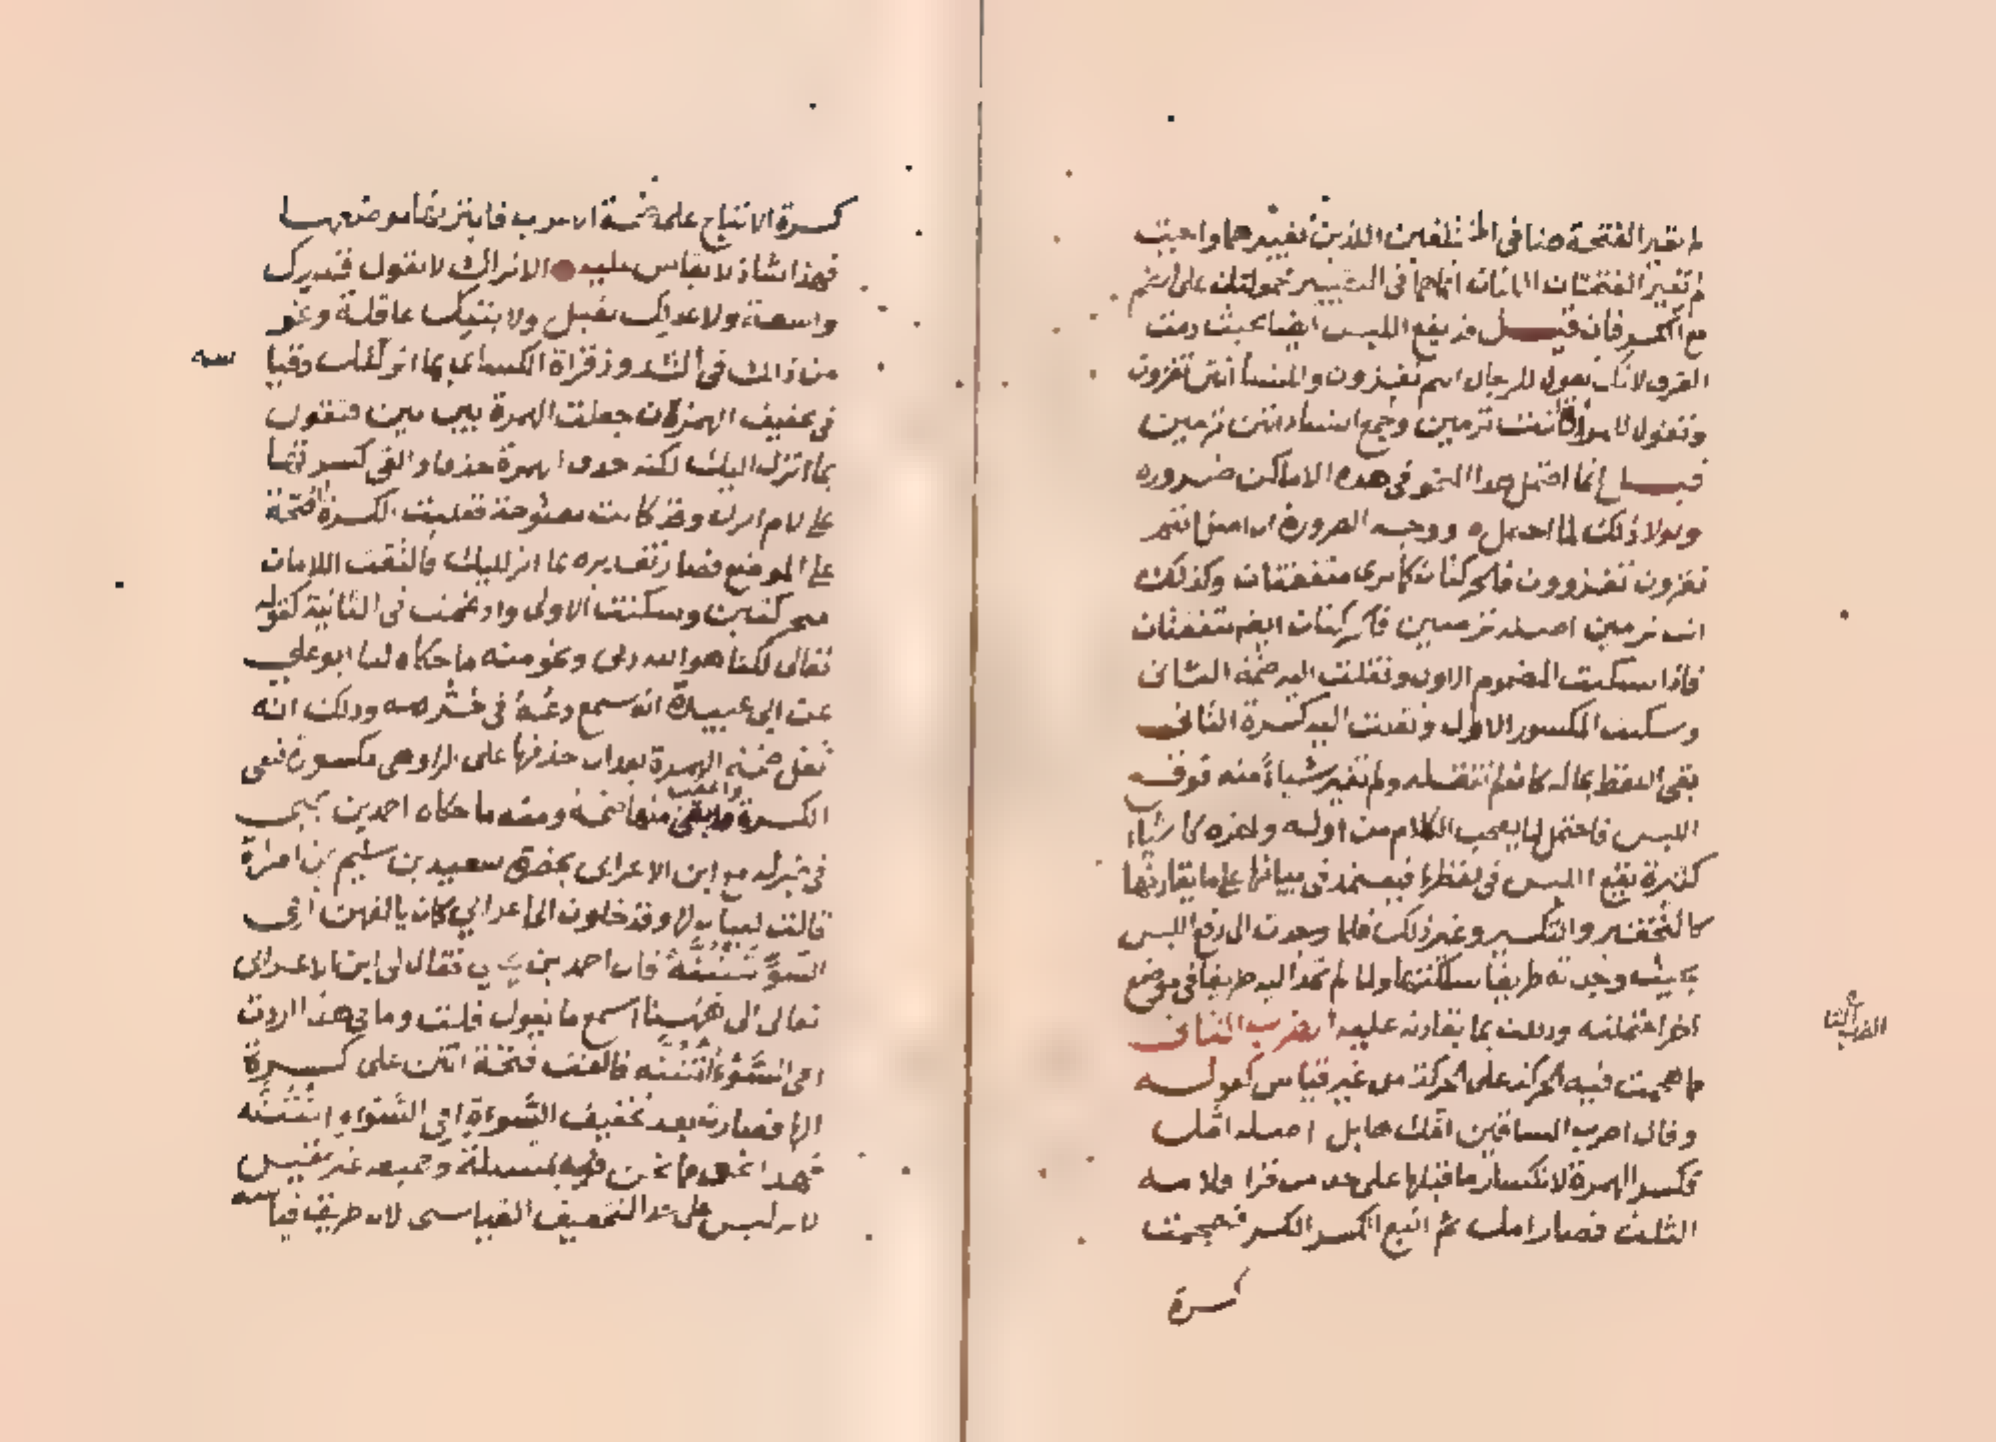 لم تغير الفتحة هنا في المختلفين اللذين تغييرهما واجب
لم تغير الفتحتان اللتان انما هما في التغيير محمولتان على الضم
مع الكسر فان قيل قد يقع اللبس ايضا بحيث رمت
الفرق لانك تقول للرجال انتم تغزون وللنساء انتن تغزون
وتقول للمرأة انت ترمين وجمع النساء انتن ترمين
قيل انما احتمل هذا النحو في هذه الاماكن ضرورة
ولولا ذلك لما احتمل ووجه الضرورة ان اصل انتم
تغزون تغزوون فالحركتان كما ترى متفقتان وكذلك
انت ترمين اصله ترميين فالحركتان ايضا متفقتان
فاذا سكنت المضموم الاول ونقلت اليه ضمة الثاني
وسكنت المكسور الاول ونقلت اليه كسرة الثاني
بقي اللفظ بحاله كان لم تنقله ولم تغير شيئا منه فوقع
اللبس فاحتمل لما يصحب الكلام من اوله واخره كاشياء
كثيرة يقع اللبس في لفظها فيعتمد في بيانها على ما يقارنها
كالتحقير والتكسير وغير ذلك فلما وجدت الى رفع اللبس
بحيث وجدته طريقا سلكتها ولما لم تجد اليه طريقا في موضع
اخر احتملته ودللت بما يقارنه عليه الضرب الثاني
ما هجمت فيه الحركة على الحركة من غير قياس كقوله
وقال اضرب الساقين امك هابل اصله امك
فكسر الهمزة لانكسار ما قبلها على حد من قرا فلامه
الثلث فصار امك ثم اتبع الكسر الكسر فهجمت
كسرة
الضرب الثاني
كسرة الاتباع على ضمة الاعراب فابتزتها موضعها
فهذا شاذ لا يقاس عليه الا تراك لا تقول قدرك
واسعة ولا عدلك ثقيل ولا بنتك عاقلة ونحو
من ذلك في الشذوذ قراة الكسائي بما انزليك وقيا
سه
في تخفيف الهمزة ان تجعلت الهمزة بين بين فتقول
بما انزل اليك لكنه حذف الهمزة حذفا والقى كسرتها
على لام انزل وقد كانت مفتوحة فغلبت الكسرة الفتحة
على الموضع فصار تقديره بما انزلليك فالتقت اللامان
متحركتين وسكنت الاولى وادغمت في الثانية كقوله
تعالى لكنا هو الله ربي ونحو منه ما حكاه لنا ابو علي
عن ابي عبيدة انه سمع دعه في حر امه وذلك انه
نقل ضمة الهمزة بعد ان حذفها على الرا وهي مكسورة فنفى
الكسرة واعقب منها ضمة ومنه ما حكاه احمد بن يحيى
في خبر له مع ابن الاعرابي بحضرة سعيد بن سلم عن امراة
قالت لبنات لها وقد خلون الى اعرابي كان يالفهن افي
السو تنتنه قال احمد بن يحيى فقال لي ابن الاعرابي
تعالى الى ههنا اسمع ما تقول قلت وما في هذا ارادت
افي السوءة انتنه فالقت فتحة انتن على كسرة
الها فصارت بعد تخفيف السوءة افي السوءة انتنه
فهذا نحو مما نحن فيه وجميعه غير مقيس
لانه ليس على حد التخفيف القياسي لان طريق قياسه